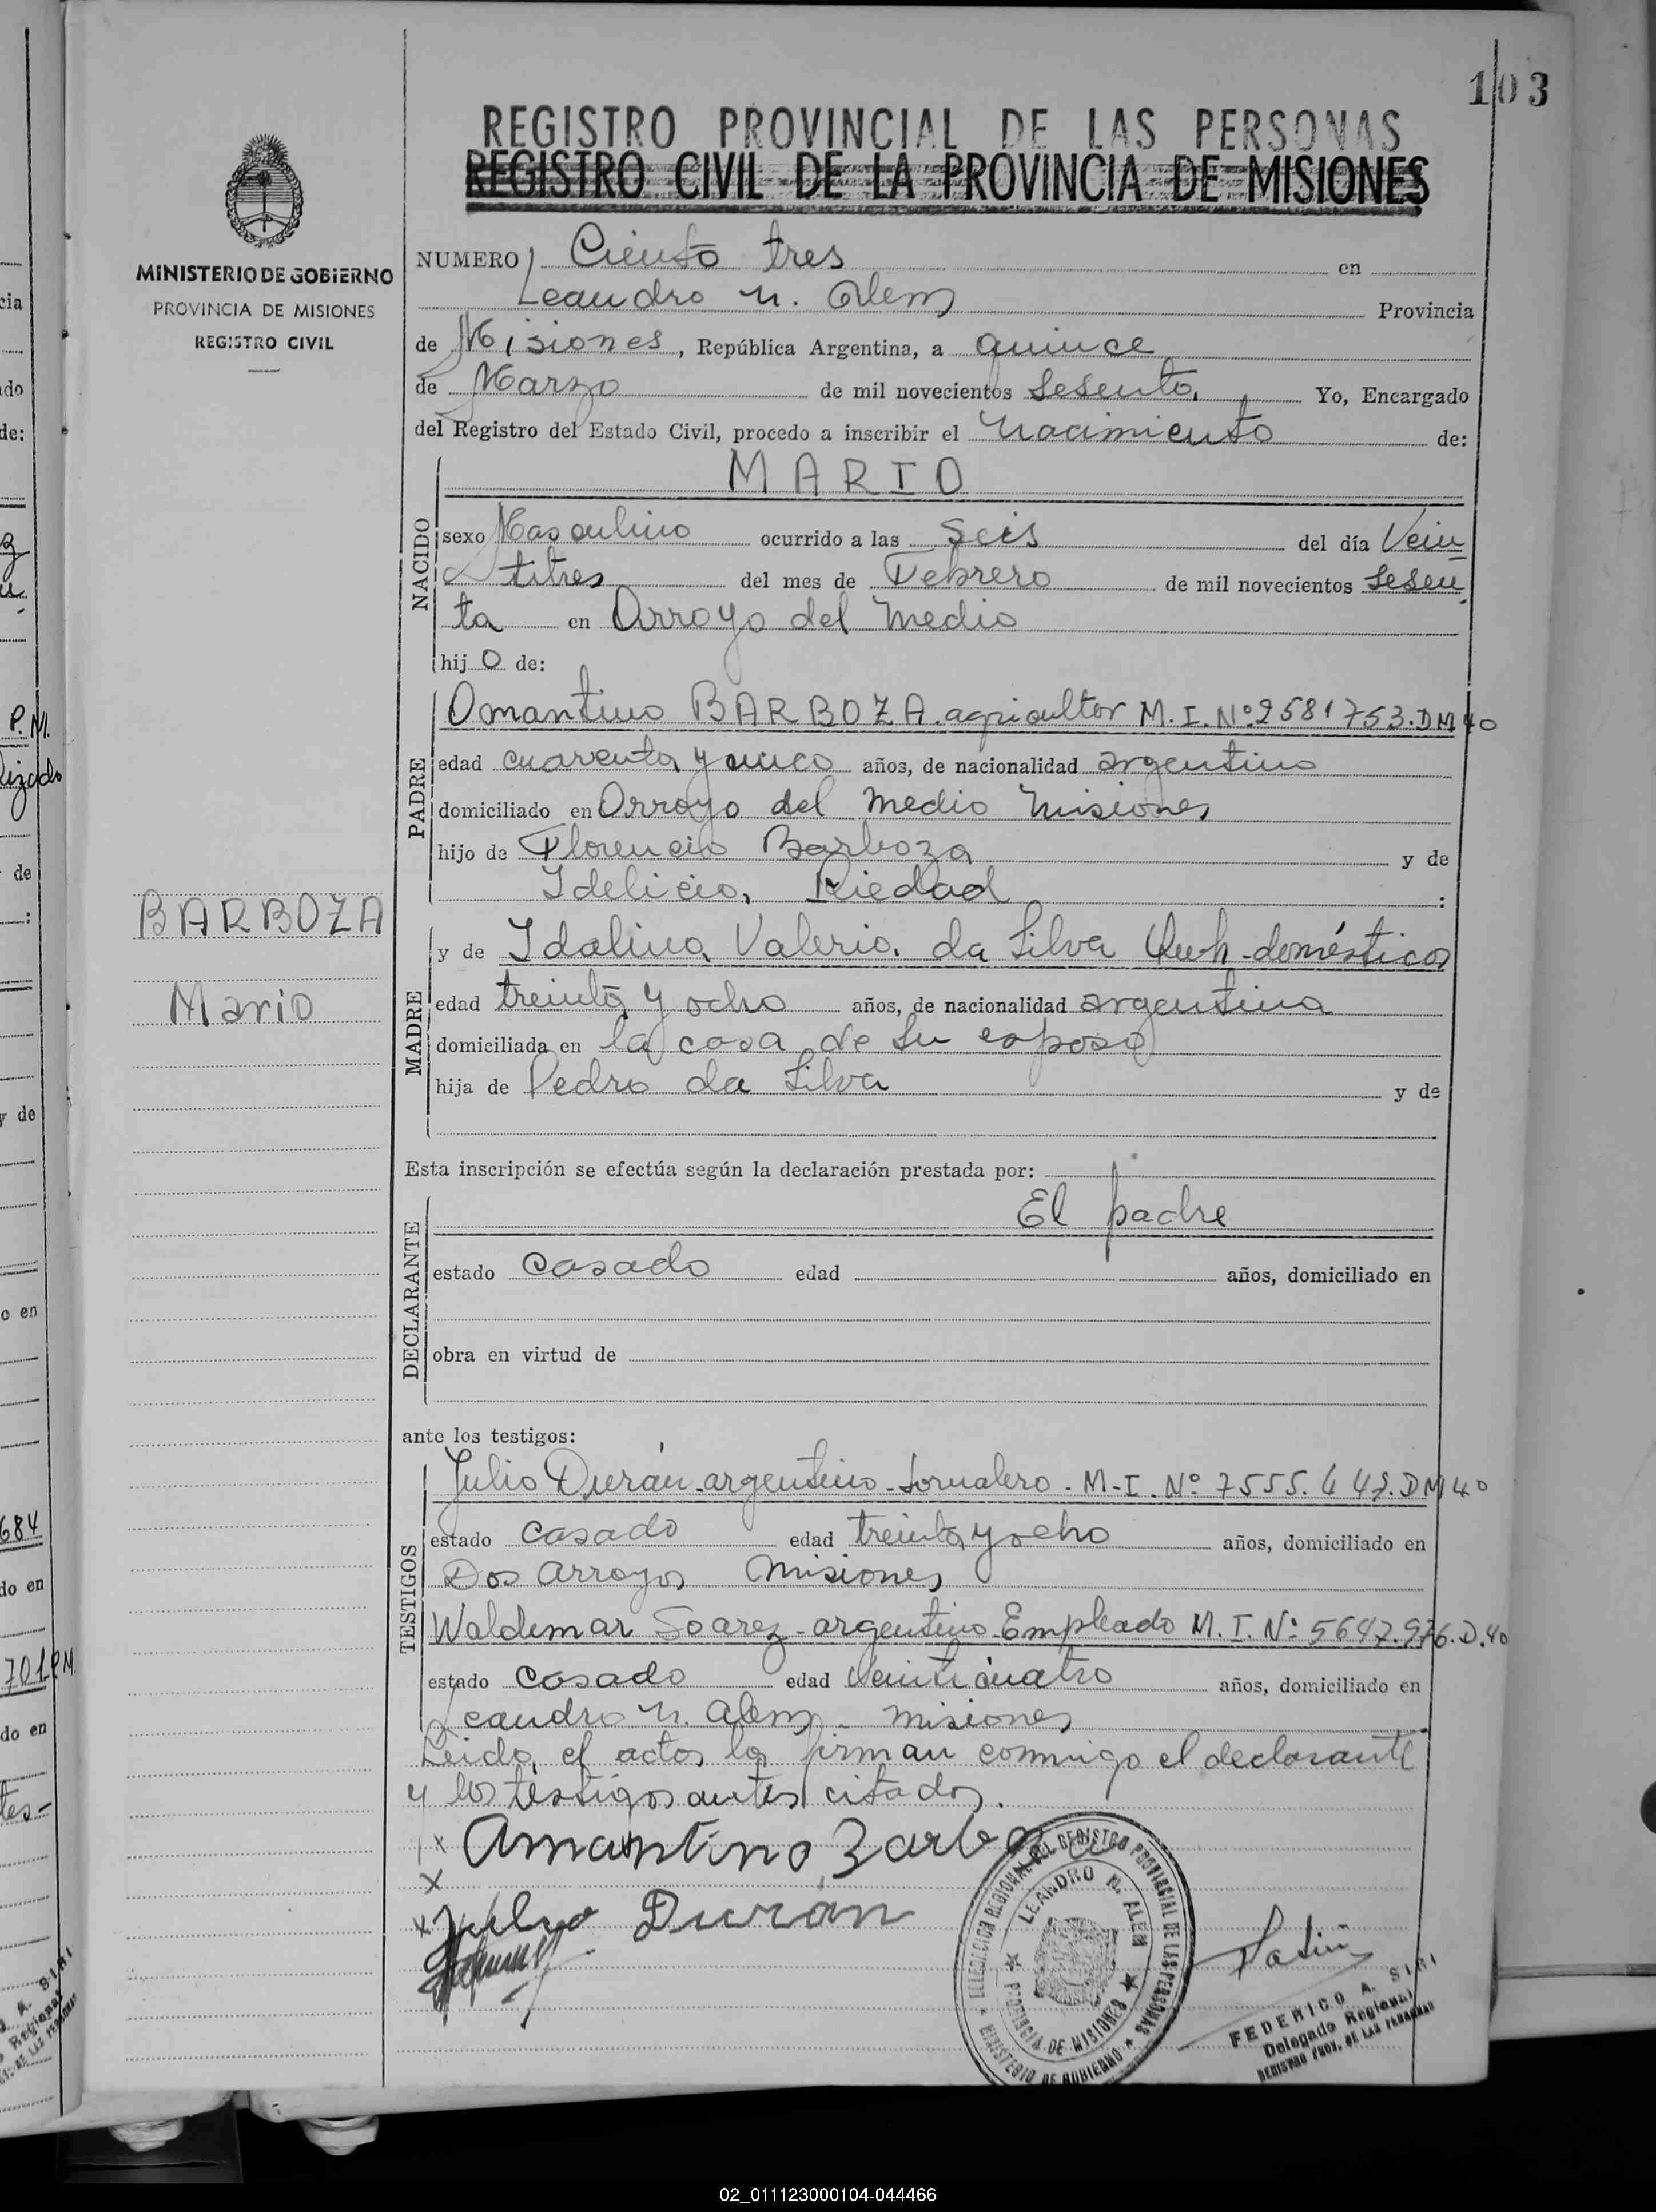 103
REGISTRO PROVINCIAL DE LAS PERSONAS
REGISTRO CIVIL DE LA PROVINCIA DE MISIONES
MINISTERIO DE GOBIERNO
PROVINCIA DE MISIONES
REGISTRO CIVIL
NUMERO Ciento tres en
Leandro N. Alem Provincia
de Misiones, República Argentina, a quince
de Marzo de mil novecientos sesenta, Yo, Encargado
del Registro del Estado Civil, procedo a inscribir el Nacimiento de:
MARIO
NACIDO
sexo Masculino ocurrido a las seis del día Vein
titres del mes de Febrero de mil novecientos sesen
ta en Arroyo del Medio
hijo de:
PADRE
Omantino BARBOZA. agricultor M. I. Nº 2581753. DM 40
edad cuarenta y cinco años, de nacionalidad argentino
domiciliado en Arroyo del Medio Misiones
hijo de Florencio Barboza y de
Idelicia Piedad :
BARBOZA
Mario
MADRE
y de Idalina Valeria da Silva domésticos
edad treinta y ocho años, de nacionalidad argentina
domiciliada en la casa de su esposo
hija de Pedro da Silva y de
Esta inscripción se efectúa según la declaración prestada por:
El padre
DECLARANTE
estado Casado edad años, domiciliado en
obra en virtud de
ante los testigos:
TESTIGOS
Julio Durán - argentino - Jornalero - M. I. Nº 7555. DM 40
estado casado edad treinta y ocho años, domiciliado en
Dos Arroyos Misiones
Waldemar Soarez - argentino - Empleado M. I. Nº 5647.976. D. 40
estado casado edad veinticuatro años, domiciliado en
Leandro N. Alem - Misiones
Leida el acta, la firman conmigo el declarante
y los testigos antes citados.
x Amantino Barboza
x
x Julio Durán
DELEGACION REGIONAL DEL REGISTRO PROVINCIAL DE LAS PERSONAS
MINISTERIO DE GOBIERNO
LEANDRO N. ALEM
PROVINCIA DE MISIONES
FEDERICO A. SIRI
Delegado Regional
REGISTRO PROV. DE LAS PERSONAS
02_011123000104-044466